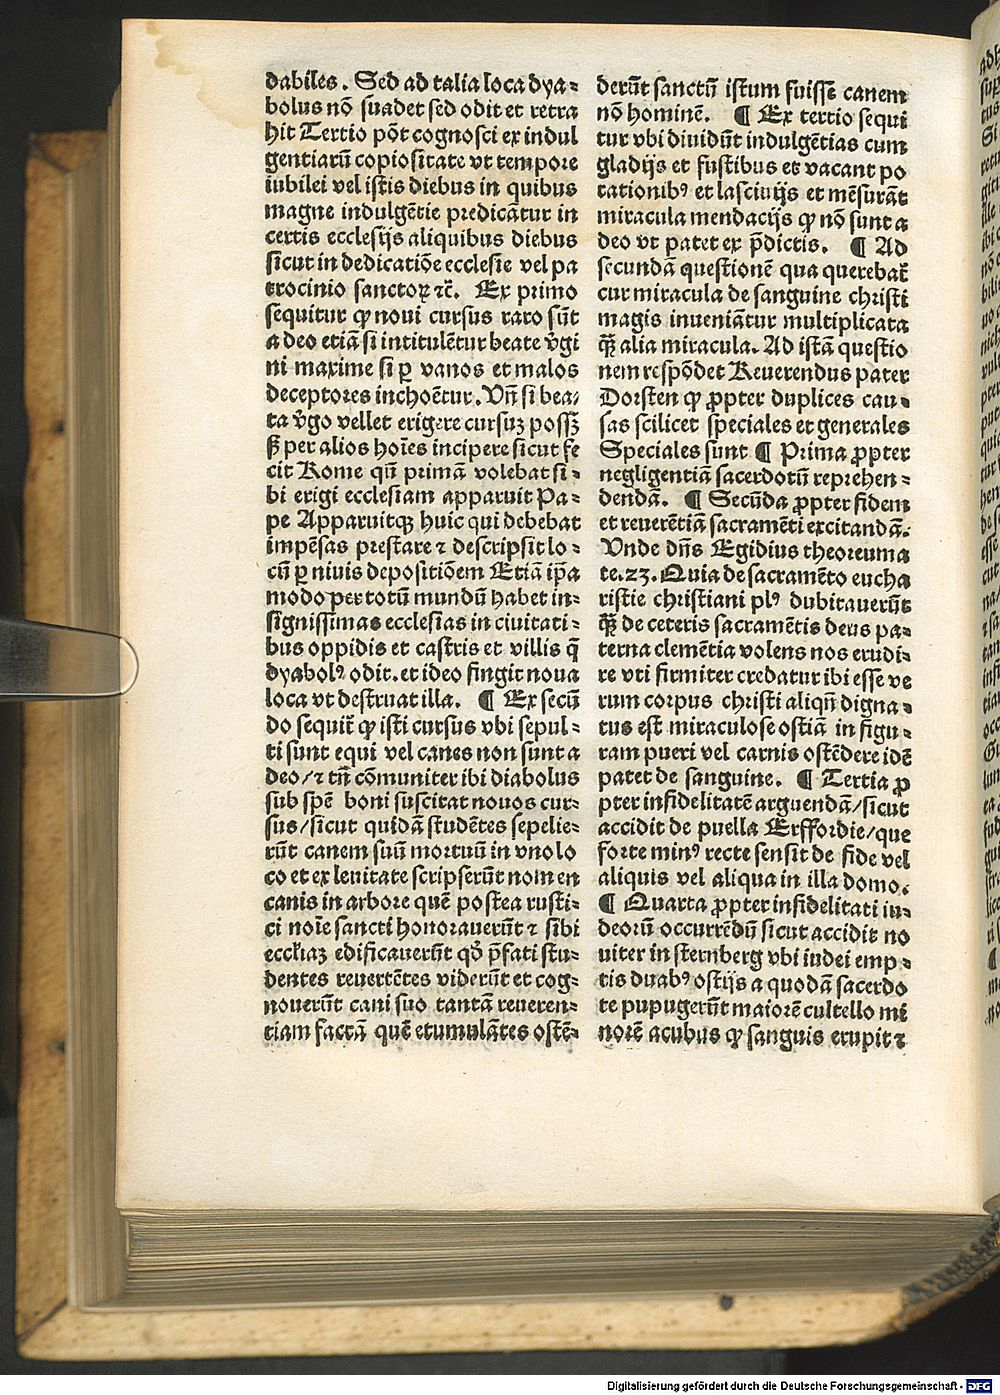 dabiles. Sed ad talia loca dya⸗
bolus nō suadet sed odit et retra
hit Tertio pōt cognosci ex indul
gentiarū copiositate vt tempore
iubilei vel istis diebus in quibus
magne indulgētie predicātur in
certis ecclesijs aliquibus diebus
sicut in dedicatiōe ecclesie vel pa
trocinio sanctoꝝ ⁊c̄. Ex primo
sequitur ꝙ noui cursus raro sūt
a deo etiā si intitulētur beate v̄gi
ni maxime si ꝑ vanos et malos
deceptores inchoētur. Vn̄ si bea⸗
ta v̄go vellet erigere cursuꝫ possꝫ
ꝭ per alios hoīes incipere sicut fe
cit Rome qn̄ primā volebat si⸗
bi erigi ecclesiam apparuit Pa⸗
pe Apparuitqꝫ huic qui debebat
impēsas prestare ⁊ descripsit lo⸗
cū ꝑ niuis depositiōem Etiā ip̄a
modo per totū mundū habet in⸗
signissimas ecclesias in ciuitati⸗
bus oppidis et castris et villis q̄
dyabolꝰ odit. et ideo fingit noua
loca vt destruat illa. ¶ Ex secū
do sequit᷑ ꝙ isti cursus vbi sepul⸗
ti sunt equi vel canes non sunt a
deo/⁊ tn̄ cōmuniter ibi diabolus
sub spē boni suscitat nouos cur⸗
sus/sicut quidā studētes sepelie⸗
rūt canem suū mortuū in vno lo
co et ex leuitate scripserūt nomen
canis in arbore quē postea rusti⸗
ci noīe sancti honorauerūt ⁊ sibi
eccl'iaꝫ edificauerūt qd̓ p̄fati stu⸗
dentes reuertētes viderūt et cog⸗
nouerūt cani suo tantā reueren⸗
tiam factā quē etumulātes ostē⸗
derūt sanctū istum fuisse canem
nō hominē. ¶ Ex tertio sequi
tur vbi diuidūt indulgētias cum
gladijs et fustibus et vacant po
tationibꝰ et lasciuijs et mēsurāt
miracula mendacijs ꝙ nō sunt a
deo vt patet ex p̄dictis. ¶ Ad
secundā questionē qua querebat᷑
cur miracula de sanguine christi
magis inueniātur multiplicata
q̄ꝫ alia miracula. Ad istā questio
nem respōdet Reuerendus pater
Dorsten ꝙ ꝓpter duplices cau⸗
sas scilicet speciales et generales
Speciales sunt ¶ Prima ꝓpter
negligentiā sacerdotū reprehen⸗
dendā. ¶ Secūda ꝓpter fidem
et reuerētiā sacramēti excitandā.
Vnde dn̄s Egidius theoreuma
te.23. Quia de sacramēto eucha
ristie christiani plꝰ dubitauerūt
q̄ꝫ de ceteris sacramētis deus pa⸗
terna clemētia volens nos erudi⸗
re vti firmiter credatur ibi esse ve
rum corpus christi aliqn̄ digna⸗
tus est miraculose ostiā in figu⸗
ram pueri vel carnis ostēdere idē
patet de sanguine. ¶ Tertia ꝓ
pter infidelitatē arguendā/sicut
accidit de puella Erffordie/que
forte minꝰ recte sensit de fide vel
aliquis vel aliqua in illa domo.
¶ Quarta ꝓpter infidelitati iu⸗
deorū occurrēdū sicut accidit no
uiter in sternberg vbi iudei emp⸗
tis duabꝰ ostijs a quodā sacerdo
te pupugerūt maiorē cultello mi
norē acubus ꝙ sanguis erupit ⁊
Digitalisierung gefördert durch die Deutsche Forschungsgemeinschaft - DFG